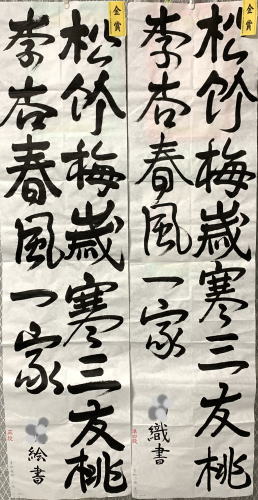 金賞
松竹梅歳寒三友桃
李杏春風一家
織書
金賞
松竹梅歳寒三友桃
李杏春風一家
絵書